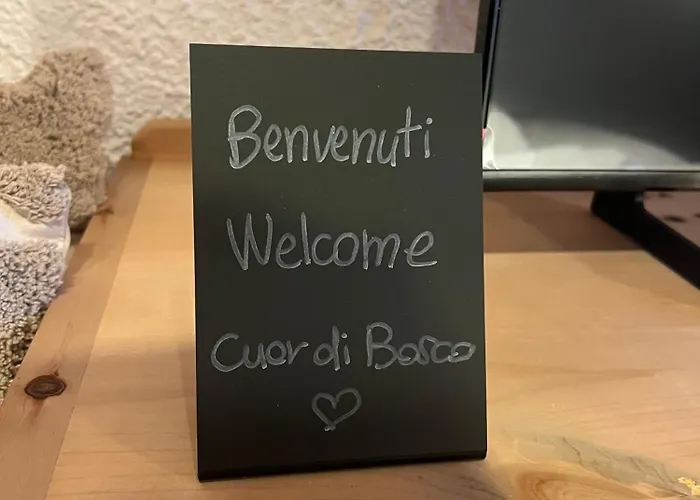 Benvenuti
Welcome
Cuor di Bosco